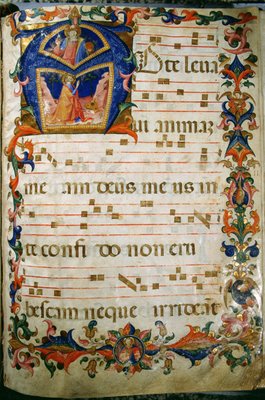 A D te leva
vi animaz
me am deus me us in
te confi do non eru
bescam neque irrideāt